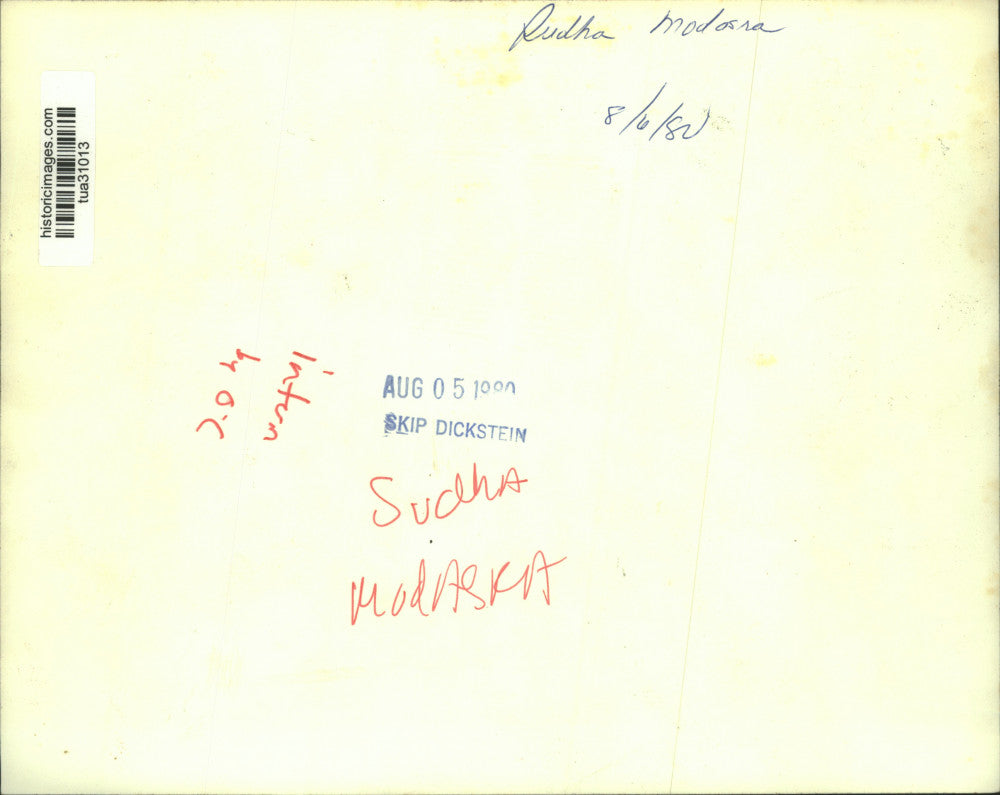 Rudha Modasra
8/6/80
historicimages.com
tua31013
AUG 05 1980
SKIP DICKSTEIN
Sudha
ModASRA